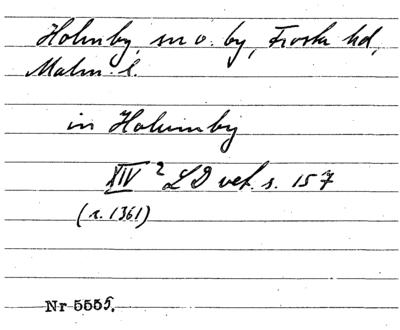 Holmby, sn o. by, Frosta hd,
Malm. l.
in Holumby
XIV 2 LD vet. s. 157
(r. 1361)
Nr 5555.